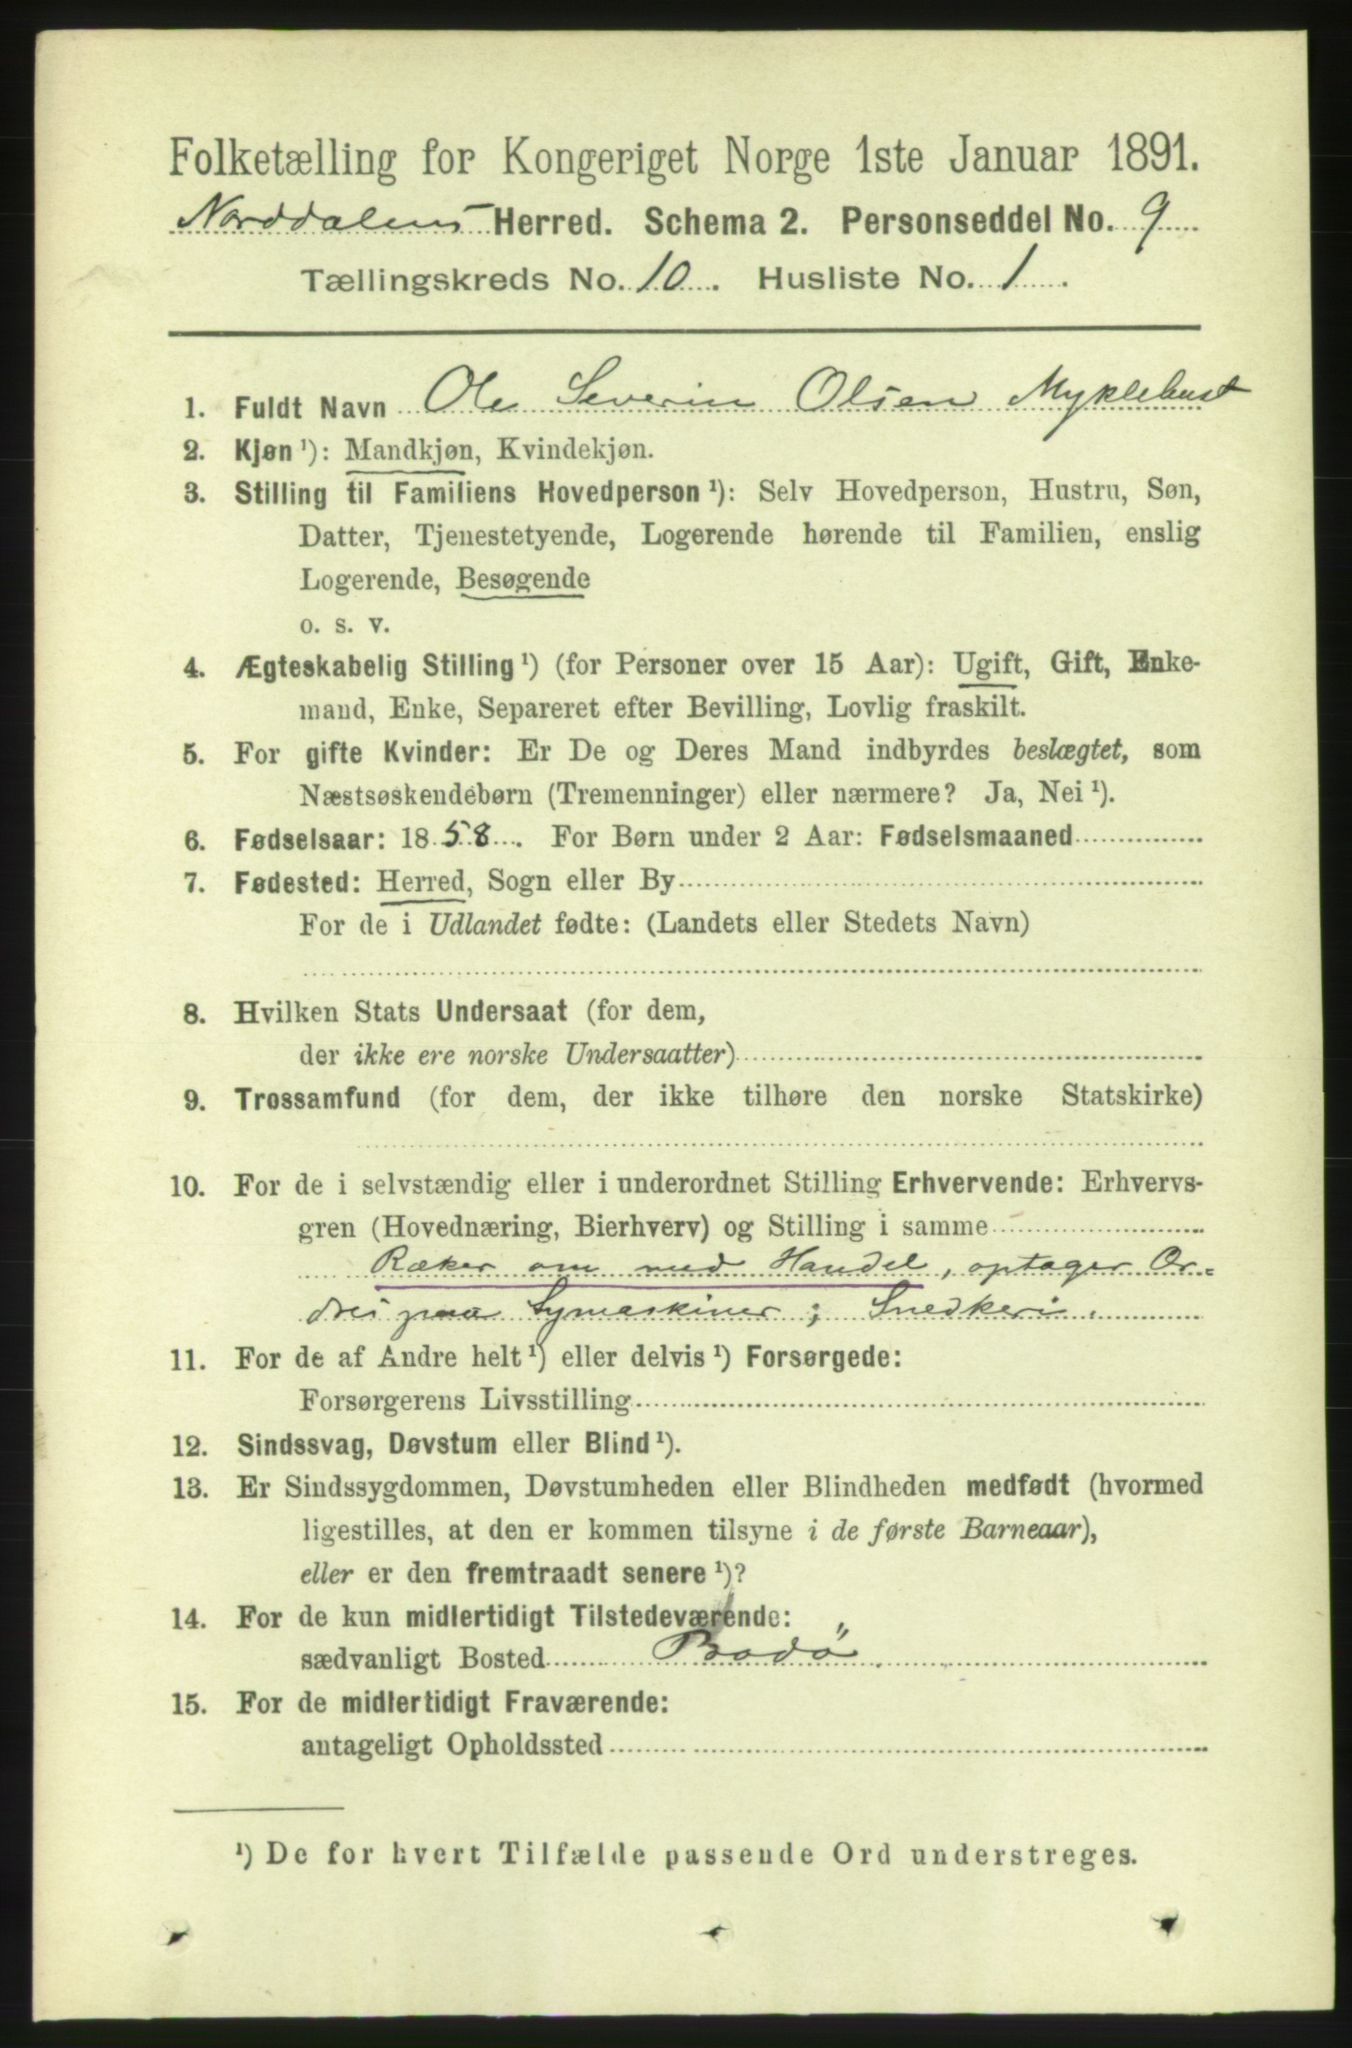 Folketælling for Kongeriget Norge 1ste Januar 1891.
Norddalens Herred. Schema 2. Personseddel No. 9
Tællingskreds No. 10. Husliste No. 1.
1. Fuldt Navn Ole Severin Olsen Myklebust
2. Kjøn ¹): Mandkjøn, Kvindekjøn.
3. Stilling til Familiens Hovedperson ¹): Selv Hovedperson, Hustru, Søn,
Datter, Tjenestetyende, Logerende hørende til Familien, enslig
Logerende, Besøgende
o. s. v.
4. Ægteskabelig Stilling ¹) (for Personer over 15 Aar): Ugift, Gift, Enke-
mand, Enke, Separeret efter Bevilling, Lovlig fraskilt.
5. For gifte Kvinder: Er De og Deres Mand indbyrdes beslægtet, som
Næstsøskendebørn (Tremenninger) eller nærmere? Ja, Nei ¹).
6. Fødselsaar: 1858. For Børn under 2 Aar: Fødselsmaaned
7. Fødested: Herred, Sogn eller By
For de i Udlandet fødte: (Landets eller Stedets Navn)
8. Hvilken Stats Undersaat (for dem,
der ikke ere norske Undersaatter)
9. Trossamfund (for dem, der ikke tilhøre den norske Statskirke)
10. For de i selvstændig eller i underordnet Stilling Erhvervende: Erhvervs-
gren (Hovednæring, Bierhverv) og Stilling i samme
Ræker om med Handel, optager Or-
dres paa Symaskiner; Snedkeri.
11. For de af Andre helt ¹) eller delvis ¹) Forsørgede:
Forsørgerens Livsstilling
12. Sindssvag, Døvstum eller Blind ¹).
13. Er Sindssygdommen, Døvstumheden eller Blindheden medfødt (hvormed
ligestilles, at den er kommen tilsyne i de første Barneaar),
eller er den fremtraadt senere ¹)?
14. For de kun midlertidigt Tilstedeværende:
sædvanligt Bosted Bodö
15. For de midlertidigt Fraværende:
antageligt Opholdssted
¹) De for hvert Tilfælde passende Ord understreges.